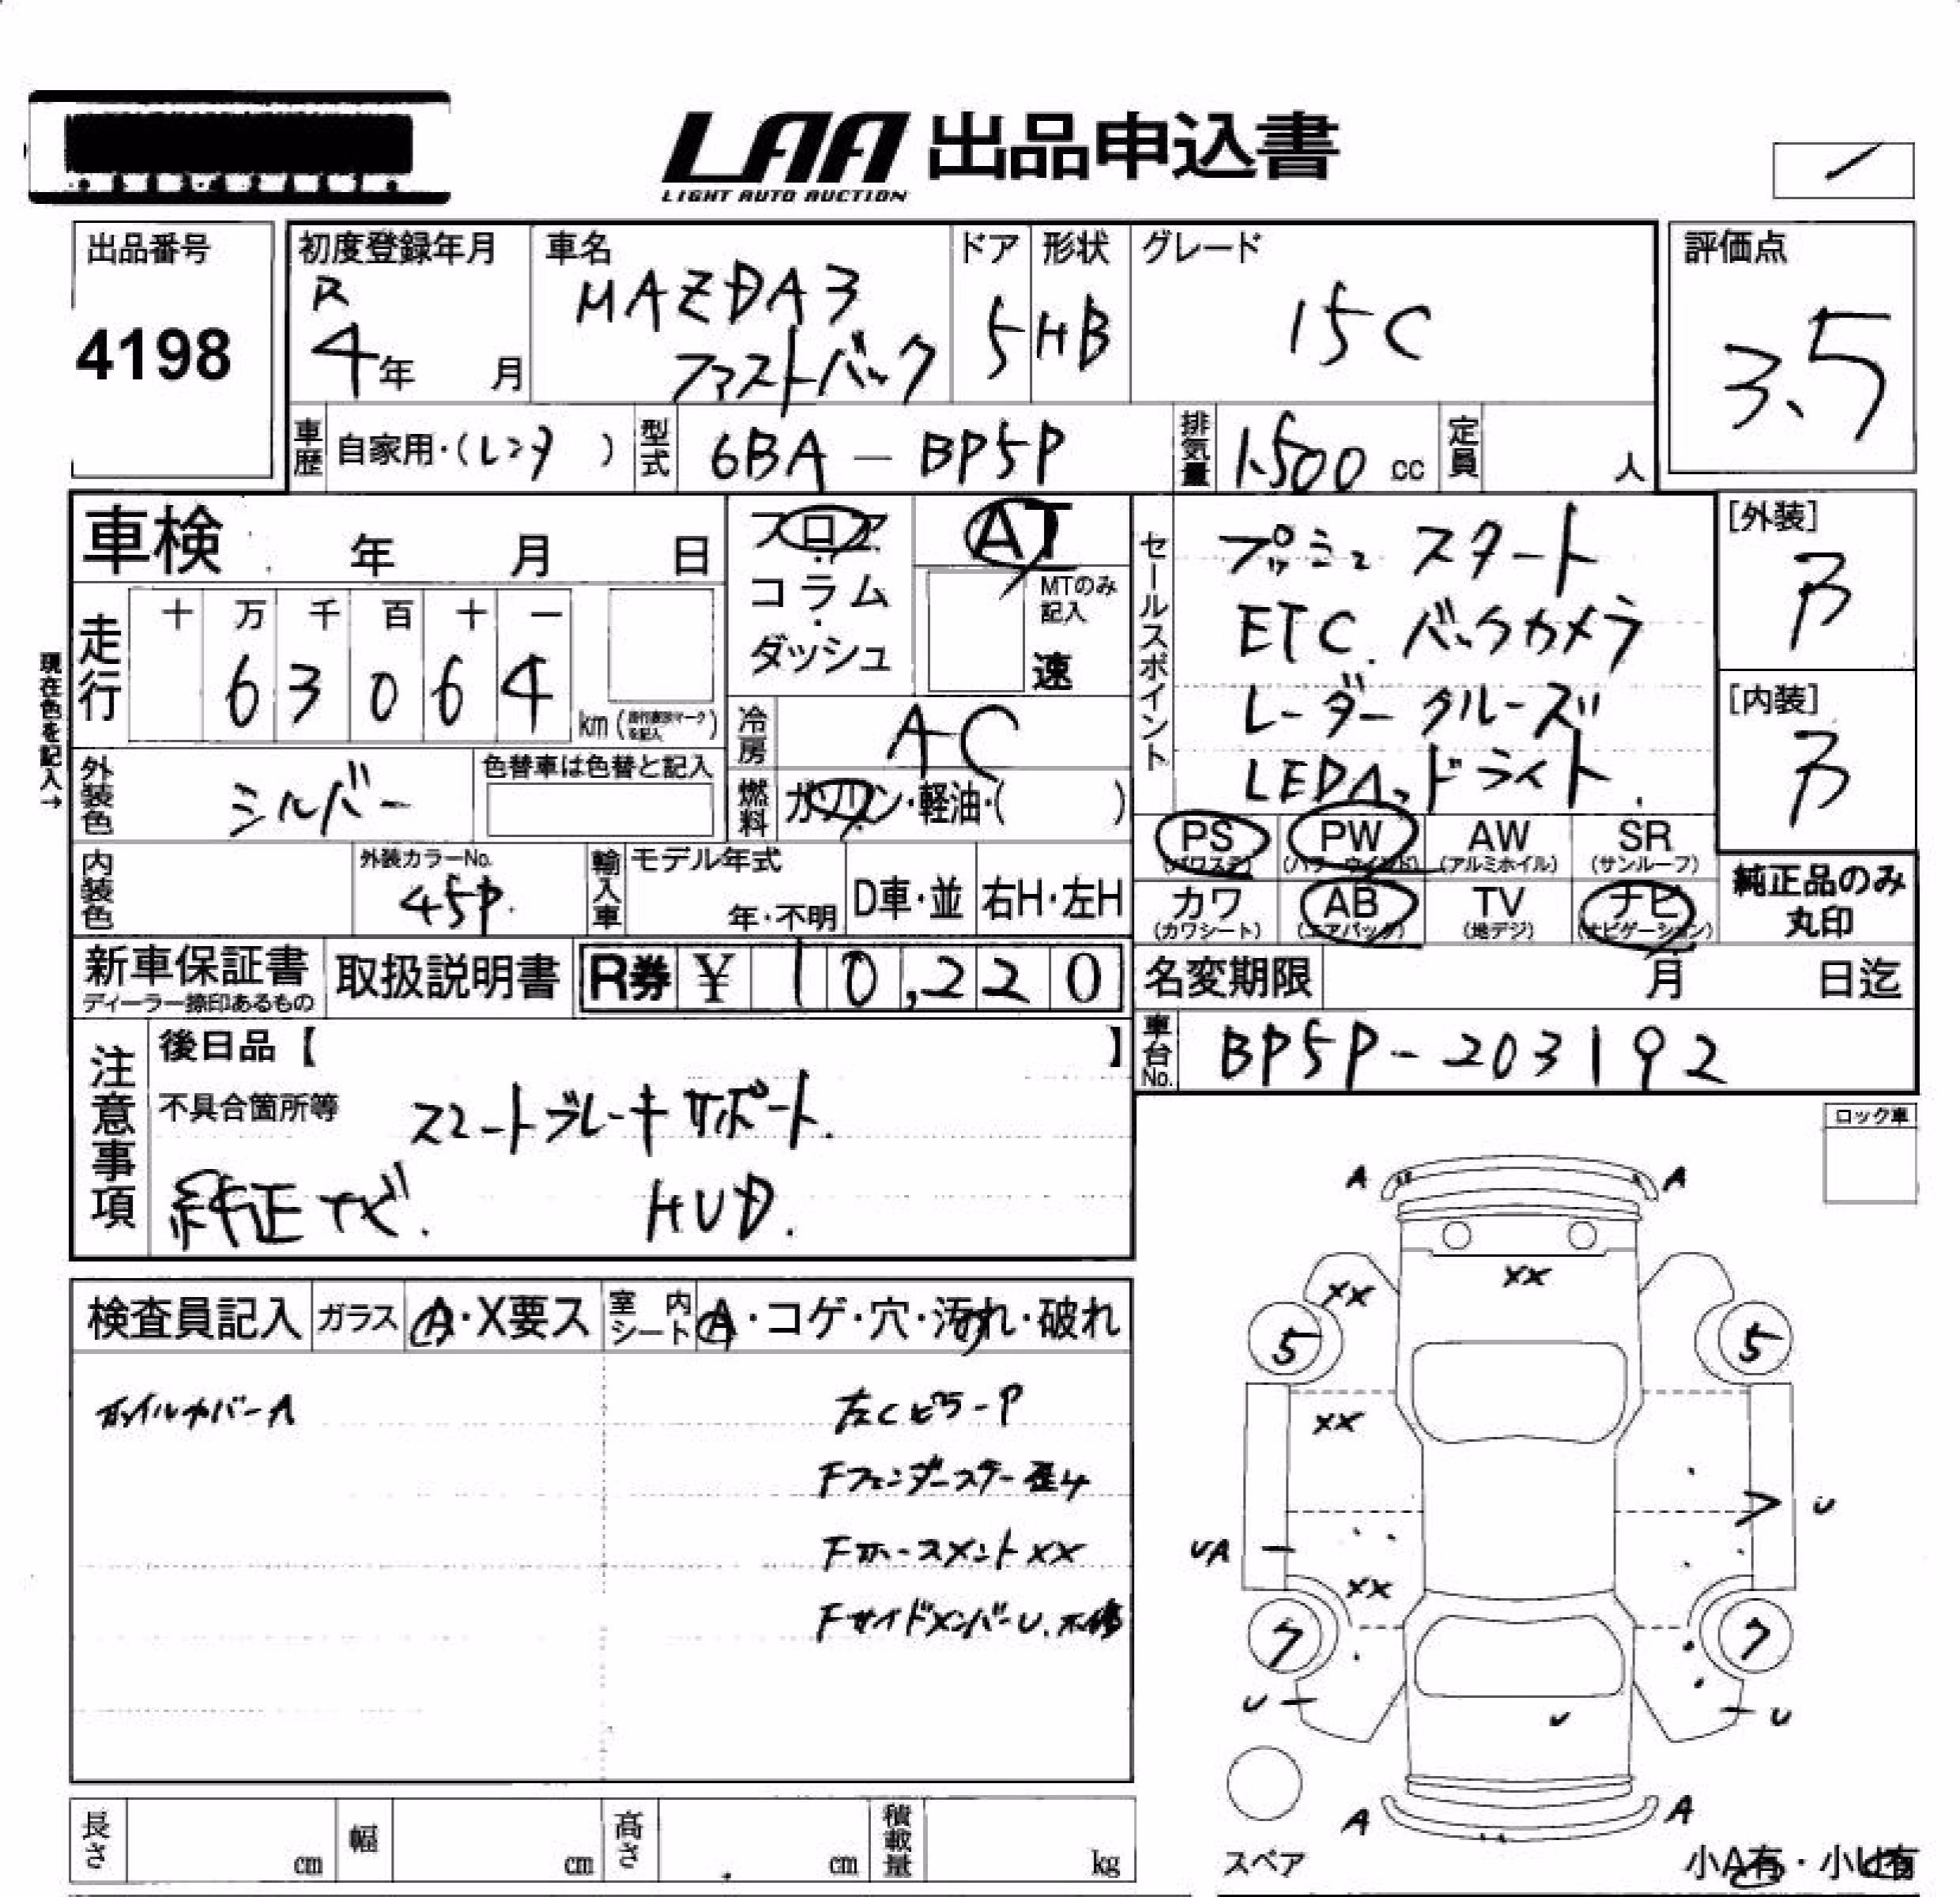 LAA 出品申込書
LIGHT AUTO AUCTION
出品番号
4198
初度登録年月
R
4年 月
車名
MAZDA3
ファストバック
ドア
5
形状
HB
グレード
15C
評価点
3.5
車歴 自家用・(レンタ )
型式 6BA - BP5P
排気量 1500 cc
定員 人
車検 年 月 日
フロア
コラム
ダッシュ
AT
MTのみ
記入
速
セールスポイント
プッシュ スタート
ETC. バックカメラ
レーダー クルーズ
LEDヘッドライト.
[外装]
[内装]
現在色を記入→
走行
十 万 千 百 十 一
6 3 0 6 4
km
冷房 AC
外装色 シルバー
色替車は色替と記入
燃料 ガソリン・軽油・( )
PS PW AW SR
(パワステ) (パワーウインド) (アルミホイル) (サンルーフ)
カワ AB TV ナビ
(カワシート) (エアバック) (地デジ) (ナビゲーション)
純正品のみ
丸印
内装色
外装カラーNo.
45P.
輸入車
モデル年式
年・不明
D車・並
右H・左H
新車保証書
ディーラー捺印あるもの
取扱説明書
R券 ¥ 10,220
名変期限 月 日迄
車台No. BP5P-203192
注意事項
後日品【 】
不具合箇所等 スマートブレーキサポート.
純正ナビ. HUD.
ロック車
検査員記入 ガラス A・X要ス
室内シート A・コゲ・穴・汚れ・破れ
ホイルカバーA
左Cピラー P
Fフェンダーステー 歪み
Fホースメント XX
Fサイドメンバー U.
A A
XX XX
5 5
XX
U
UA
XX
7 7
U U
A A
スペア
小A有・小U有
長さ cm
幅 cm
高さ cm
積載量 kg